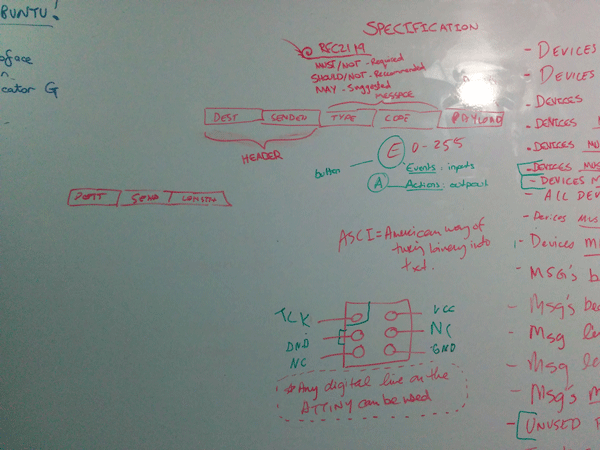 UBUNTU!
SPECIFICATION
RFC2119
MUST/NOT - Required
SHOULD/NOT - Recommended
MAY - Suggested
MESSAGE
DEST SENDER TYPE CODE PAYLOAD
HEADER
E 0-255
button
Events: inputs
A Actions: output
ASCI = American way of
turing binary into
txt.
TCK VCC
NC
NC GND
* Any digital line on the
ATTINY can be used
- DEVICES
- DEVICES
- DEVICES
- DEVICES
- DEVICES MUS
- DEVICES MUS
- DEVICES M
- ALL DEV
- Devices MUS
- Devices M
- MSG's b
- Msg's be
- Msg le
- Msg le
- Msg's m
- UNUSED